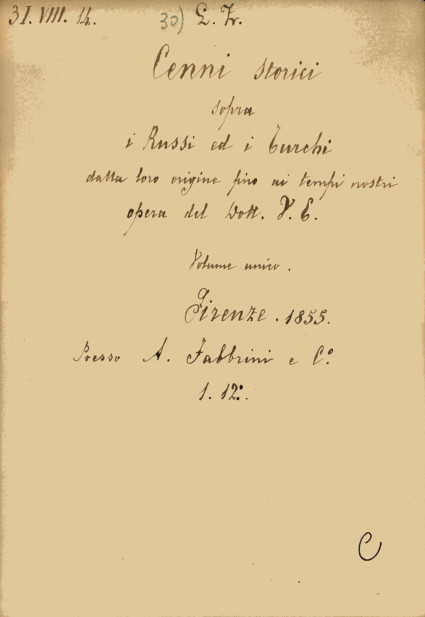 31. VIII. 14. 30) L. Tr.
Cenni storici
sopra
i Russi ed i Turchi
dalla loro origine fino ai tempi nostri
opera del Dott. V. E.
Volume unico.
Firenze. 1855.
Presso A. Fabbrini e Cº
1. 12º.
C